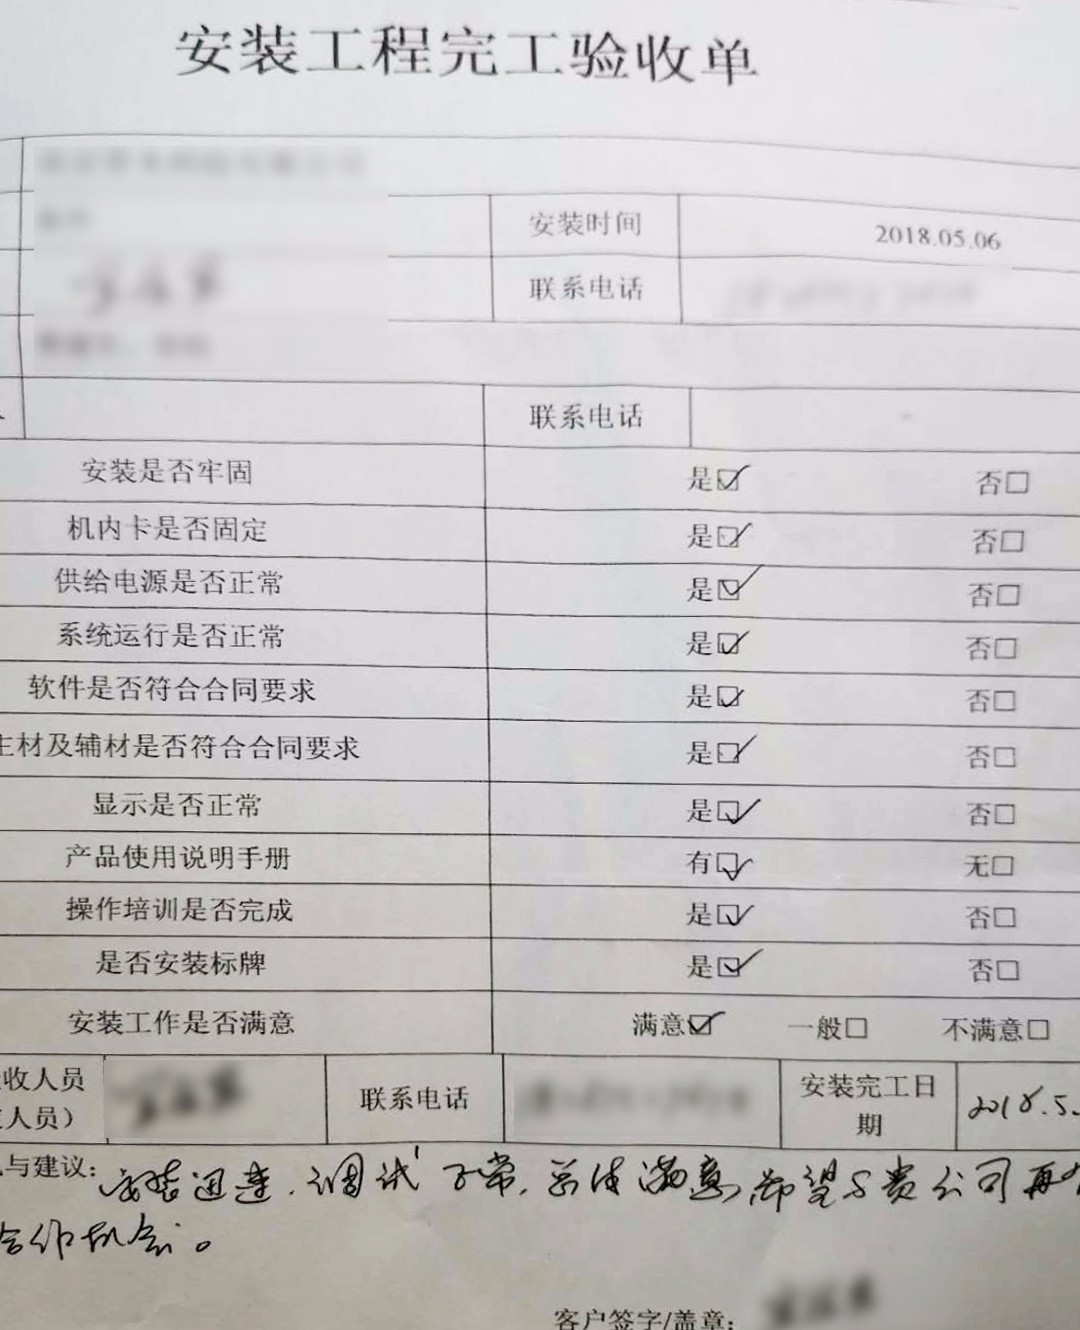 安装工程完工验收单
安装时间 2018.05.06
联系电话
联系电话
安装是否牢固 是☑ 否□
机内卡是否固定 是☑ 否□
供给电源是否正常 是☑ 否□
系统运行是否正常 是☑ 否□
软件是否符合合同要求 是☑ 否□
主材及辅材是否符合合同要求 是☑ 否□
显示是否正常 是☑ 否□
产品使用说明手册 有☑ 无□
操作培训是否完成 是☑ 否□
是否安装标牌 是☑ 否□
安装工作是否满意 满意☑ 一般□ 不满意□
收人员 联系电话 安装完工日 2018.5.
人员） 期
与建议: 安装迅速.调试正常,总体满意,希望与贵公司再有
合作机会。
客户签字/盖章: